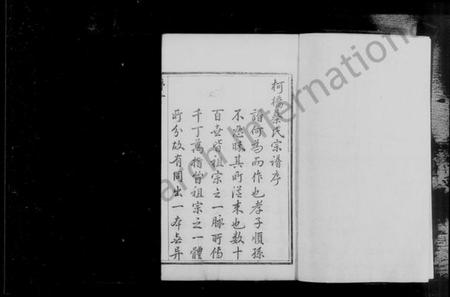 柯橋秦氏宗譜序
譜何為而作也孝子順孫
不忍昧其所從來也數十
百世皆祖宗之一脉所傳
千丁萬指皆祖宗之一體
所分故有同出一本無異
arch International